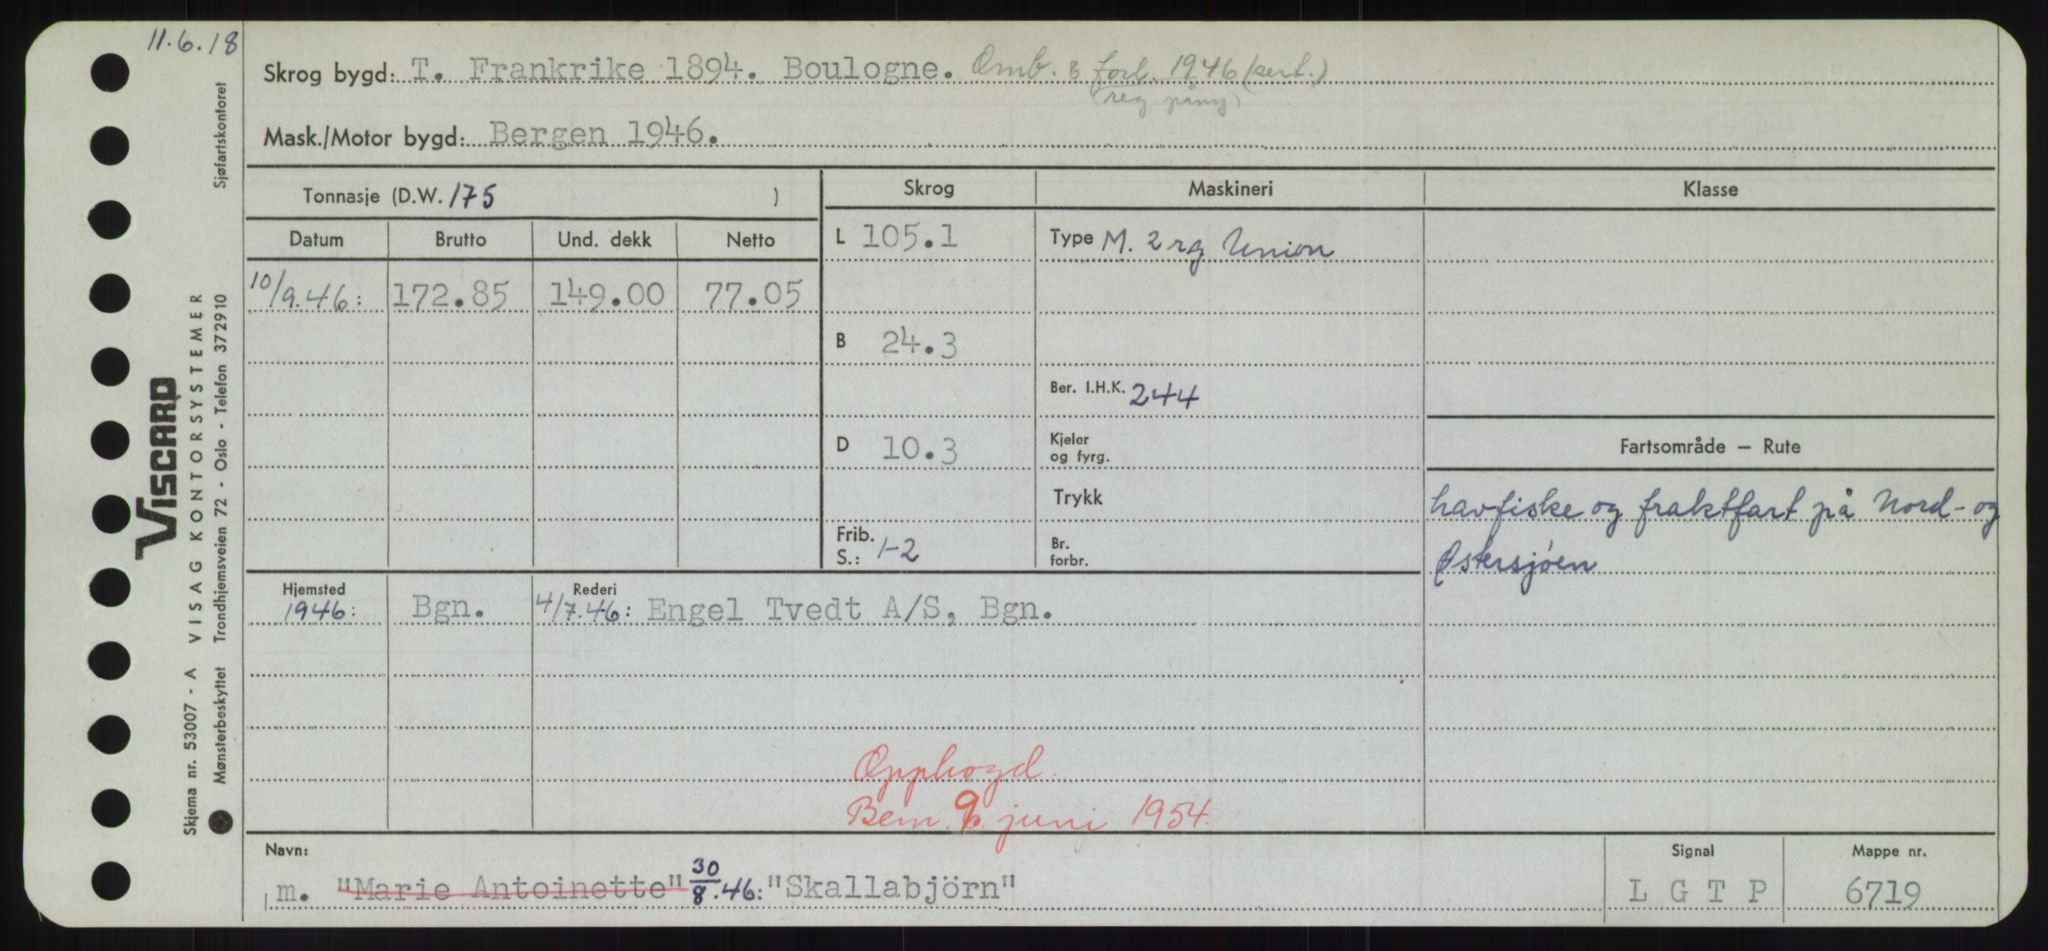 11.6.18
Skrog bygd: T. Frankrike 1894. Boulogne. Omb. & forl. 1946 (sert.)
(reg påny)
Mask./Motor bygd: Bergen 1946.
Tonnasje (D.W. 175 )
Skrog Maskineri Klasse
Datum Brutto Und. dekk Netto
L 105.1 Type M. 2 rg Union
10/9.46: 172.85 149.00 77.05
B 24.3
Ber. I.H.K. 244
D 10.3 Kjeler og fyrg.
Fartsområde — Rute
Trykk
havfiske og fraktfart på Nord- og
Østersjøen
Frib. S.: 1-2 Br. forbr.
Hjemsted Rederi
1946: Bgn. 4/7.46: Engel Tvedt A/S, Bgn.
Opphogd.
Bem. 9. juni 1954.
Navn: Signal Mappe nr.
m. "Marie Antoinette" 30/8.46: "Skallabjörn" L G T P 6719
Sjøfartskontoret
VISCARD
VISAG KONTORSYSTEMER
Skjema nr. 53007 - A
Mønsterbeskyttet Trondhjemsveien 72 - Oslo - Telefon 372910